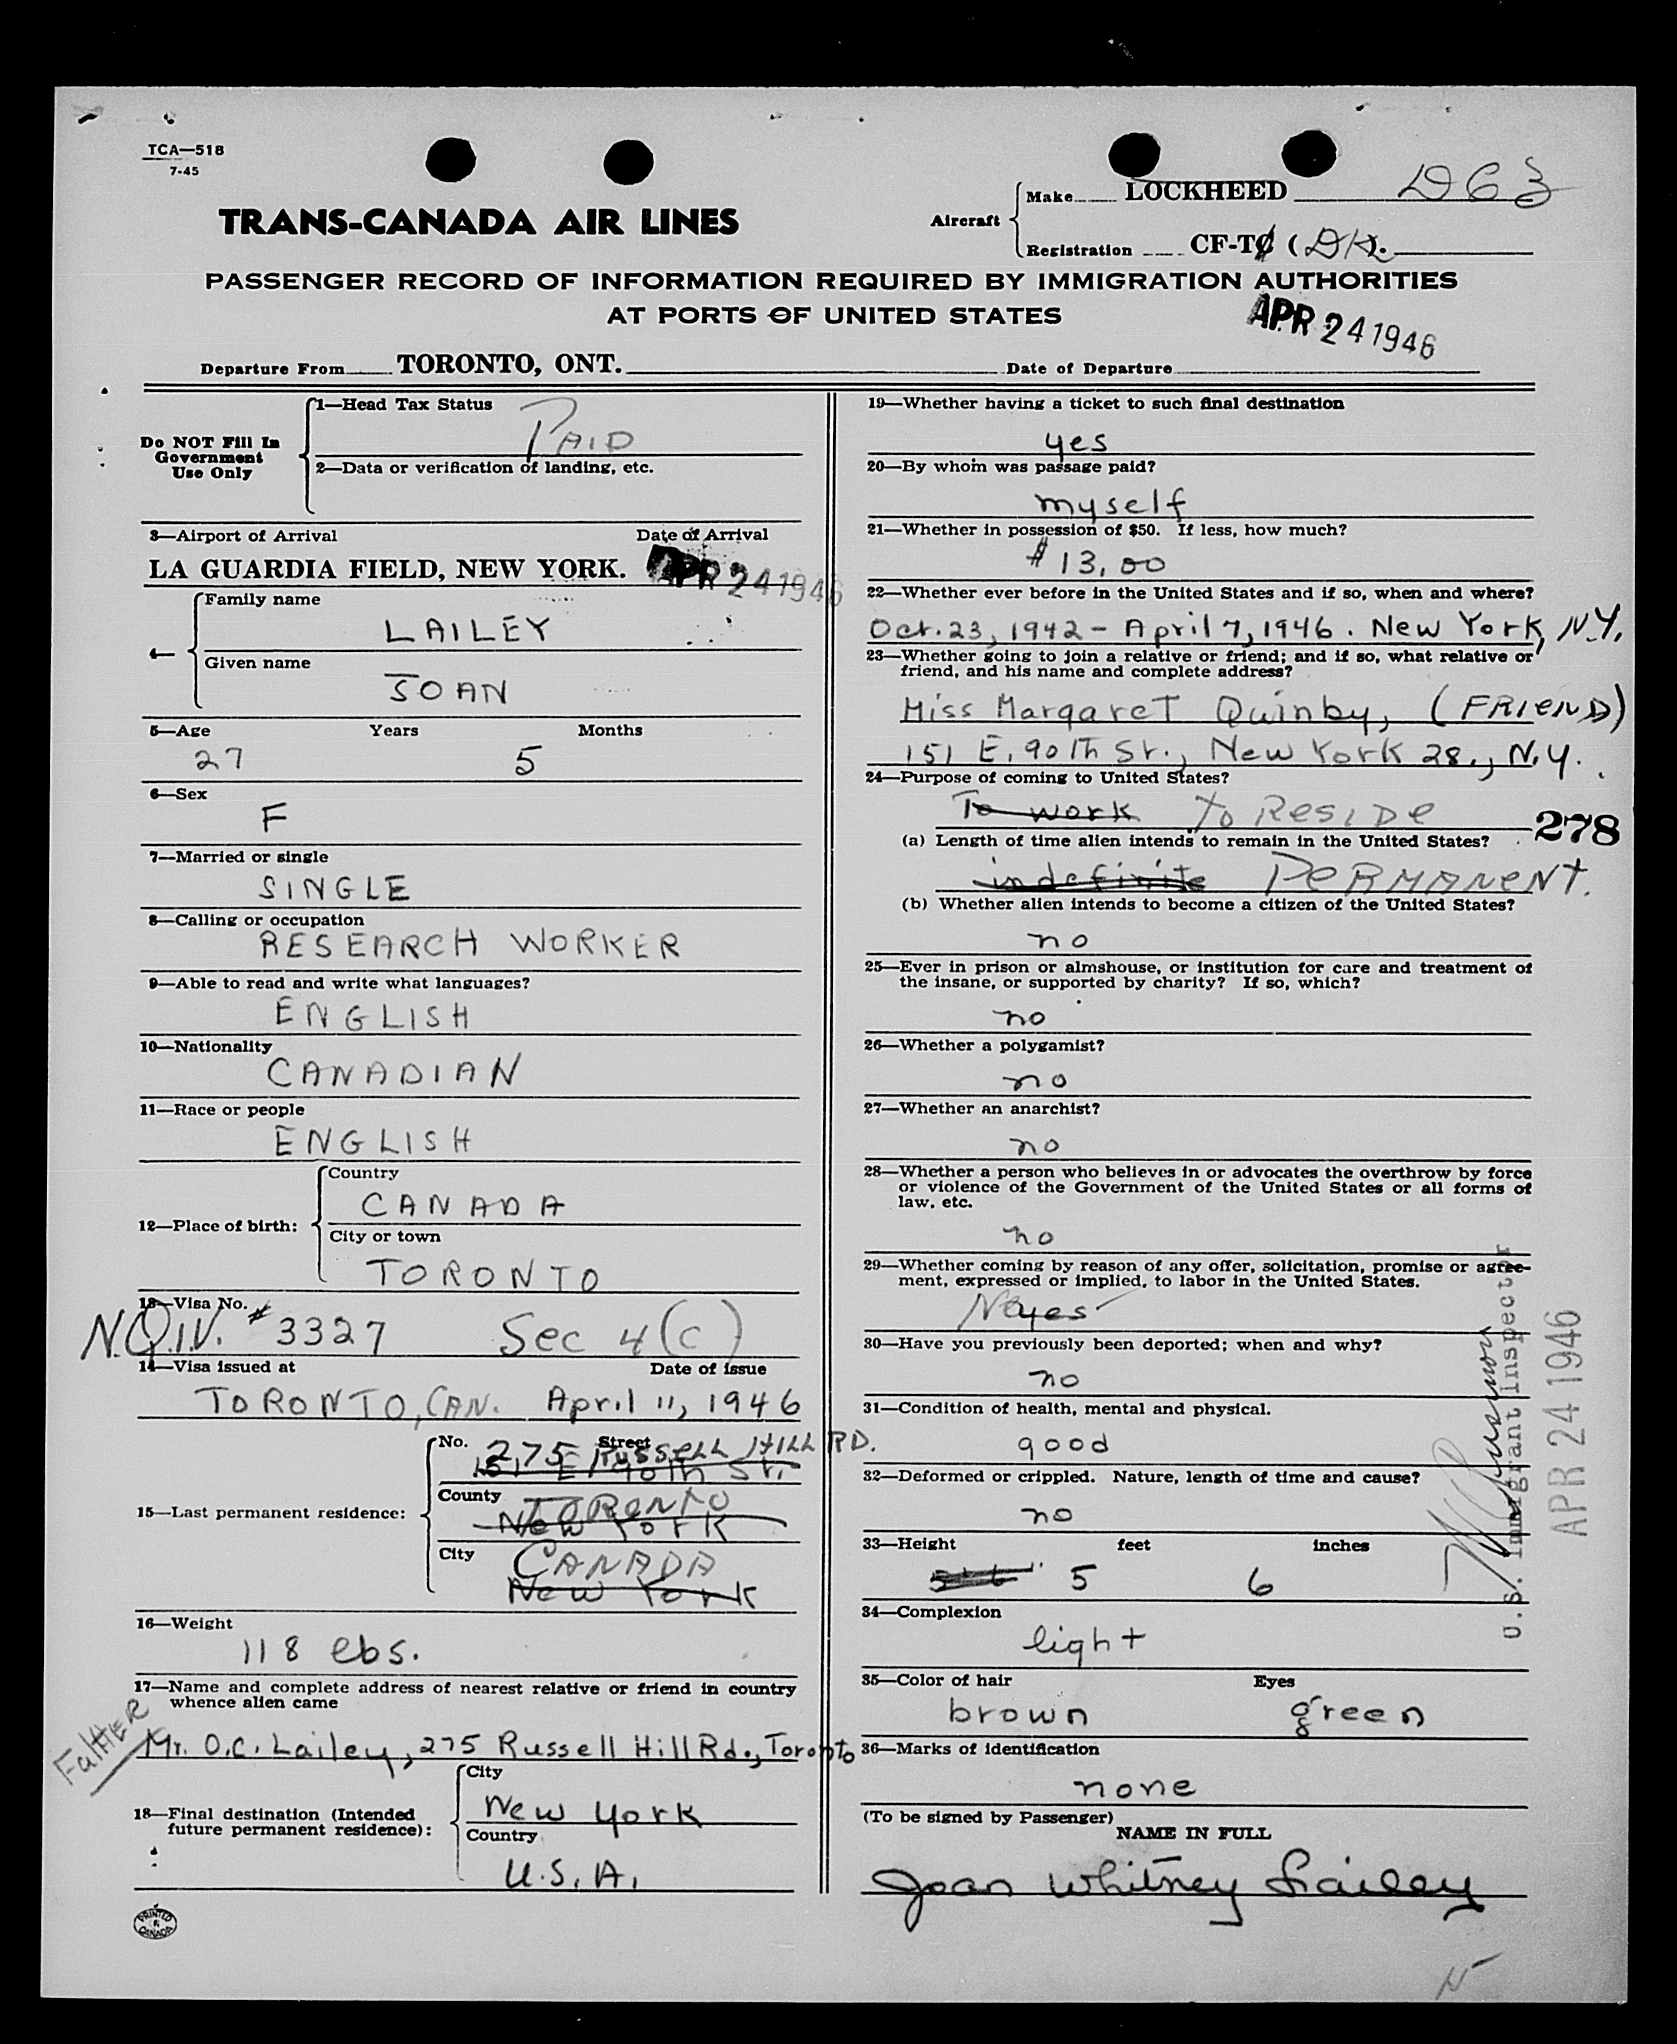 TCA—518
7-45
TRANS-CANADA AIR LINES
Aircraft
Make LOCKHEED DC3
Registration CF-TC (DK).
PASSENGER RECORD OF INFORMATION REQUIRED BY IMMIGRATION AUTHORITIES
AT PORTS OF UNITED STATES
APR 24 1946
Departure From TORONTO, ONT. Date of Departure
Do NOT Fill In
Government
Use Only
1—Head Tax Status
PAID
2—Data or verification of landing, etc.
3—Airport of Arrival Date of Arrival
LA GUARDIA FIELD, NEW YORK. APR 24 1946
4— Family name
LAILEY
Given name
JOAN
5—Age Years Months
27 5
6—Sex
F
7—Married or single
SINGLE
8—Calling or occupation
RESEARCH WORKER
9—Able to read and write what languages?
ENGLISH
10—Nationality
CANADIAN
11—Race or people
ENGLISH
12—Place of birth:
Country
CANADA
City or town
TORONTO
13—Visa No.
N.Q.I.V. #3327 Sec 4(c)
14—Visa issued at Date of issue
TORONTO, CAN. April 11, 1946
15—Last permanent residence:
No. Street
275 RUSSELL HILL RD.
151 E. 90th St.
County
TORONTO
New York
City
CANADA
New York
16—Weight
118 lbs.
17—Name and complete address of nearest relative or friend in country
whence alien came
FatHER
Mr. O.C. Lailey, 275 Russell Hill Rd., Toronto
18—Final destination (Intended
future permanent residence):
City
New York
Country
U.S.A.
PRINTED
IN
CANADA
19—Whether having a ticket to such final destination
yes
20—By whom was passage paid?
myself
21—Whether in possession of $50. If less, how much?
$13.00
22—Whether ever before in the United States and if so, when and where?
Oct. 23, 1942 - April 7, 1946. New York, N.Y.
23—Whether going to join a relative or friend; and if so, what relative or
friend, and his name and complete address?
Miss Margaret Quinby, (FRIEND)
151 E. 90th St., New York 28., N.Y.
24—Purpose of coming to United States?
To work To RESIDE
278
(a) Length of time alien intends to remain in the United States?
indefinite PERMANENT.
(b) Whether alien intends to become a citizen of the United States?
no
25—Ever in prison or almshouse, or institution for care and treatment of
the insane, or supported by charity? If so, which?
no
26—Whether a polygamist?
no
27—Whether an anarchist?
no
28—Whether a person who believes in or advocates the overthrow by force
or violence of the Government of the United States or all forms of
law, etc.
no
29—Whether coming by reason of any offer, solicitation, promise or agree-
ment, expressed or implied, to labor in the United States.
No yes
30—Have you previously been deported; when and why?
no
31—Condition of health, mental and physical.
good
32—Deformed or crippled. Nature, length of time and cause?
no
33—Height feet inches
5'6" 5 6
34—Complexion
light
35—Color of hair Eyes
brown green
36—Marks of identification
none
(To be signed by Passenger)
NAME IN FULL
Joan Whitney Lailey
U.S. Immigrant Inspector
APR 24 1946
N